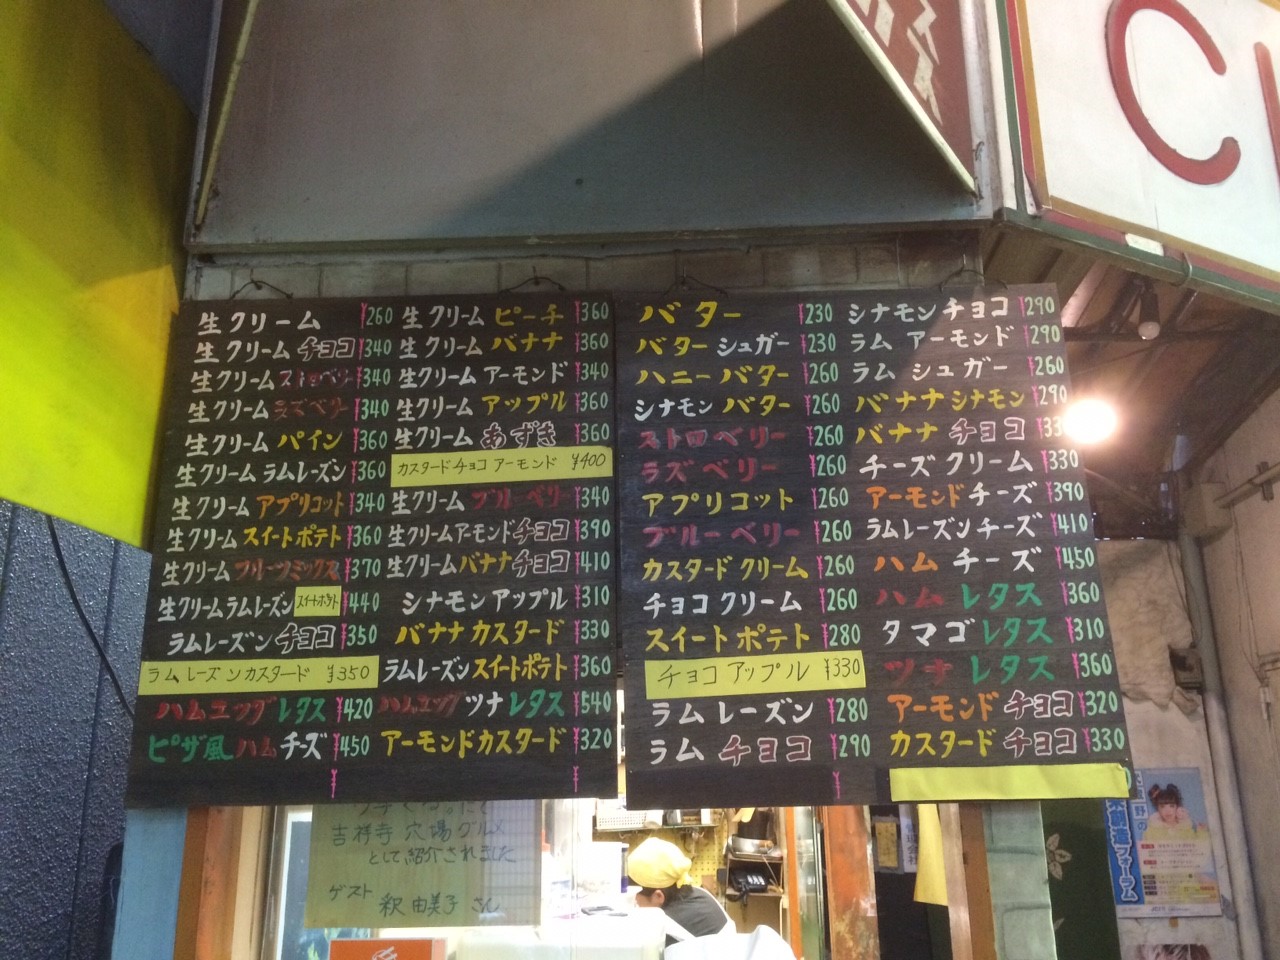 生クリーム ¥260
生クリーム チョコ ¥340
生クリーム ストロベリー ¥340
生クリーム ラズベリー ¥340
生クリーム パイン ¥360
生クリーム ラムレーズン ¥360
生クリーム アプリコット ¥340
生クリーム スイートポテト ¥360
生クリーム フルーツミックス ¥370
生クリームラムレーズン スイートポテト ¥440
ラムレーズン チョコ ¥350
ラムレーズンカスタード ¥350
ハムエッグ レタス ¥420
ピザ風 ハム チーズ ¥450
¥
生クリーム ピーチ ¥360
生クリーム バナナ ¥360
生クリーム アーモンド ¥340
生クリーム アップル ¥360
生クリーム あずき ¥360
カスタードチョコ アーモンド ¥400
生クリーム ブルーベリー ¥340
生クリームアーモンドチョコ ¥390
生クリームバナナチョコ ¥410
シナモンアップル ¥310
バナナカスタード ¥330
ラムレーズンスイートポテト ¥360
ハムエッグ ツナ レタス ¥540
アーモンドカスタード ¥320
¥
バター ¥230
バター シュガー ¥230
ハニーバター ¥260
シナモン バター ¥260
ストロベリー ¥260
ラズベリー ¥260
アプリコット ¥260
ブルーベリー ¥260
カスタード クリーム ¥260
チョコクリーム ¥260
スイート ポテト ¥280
チョコアップル ¥330
ラムレーズン ¥280
ラム チョコ ¥290
¥
シナモンチョコ ¥290
ラム アーモンド ¥290
ラム シュガー ¥260
バナナシナモン ¥290
バナナ チョコ ¥330
チーズクリーム ¥330
アーモンドチーズ ¥390
ラムレーズンチーズ ¥410
ハム チーズ ¥450
ハム レタス ¥360
タマゴ レタス ¥310
ツナ レタス ¥360
アーモンド チョコ ¥320
カスタード チョコ ¥330
吉祥寺 穴場グルメ
として紹介されました
ゲスト
釈 由美子 さん
C
創造フォーラム